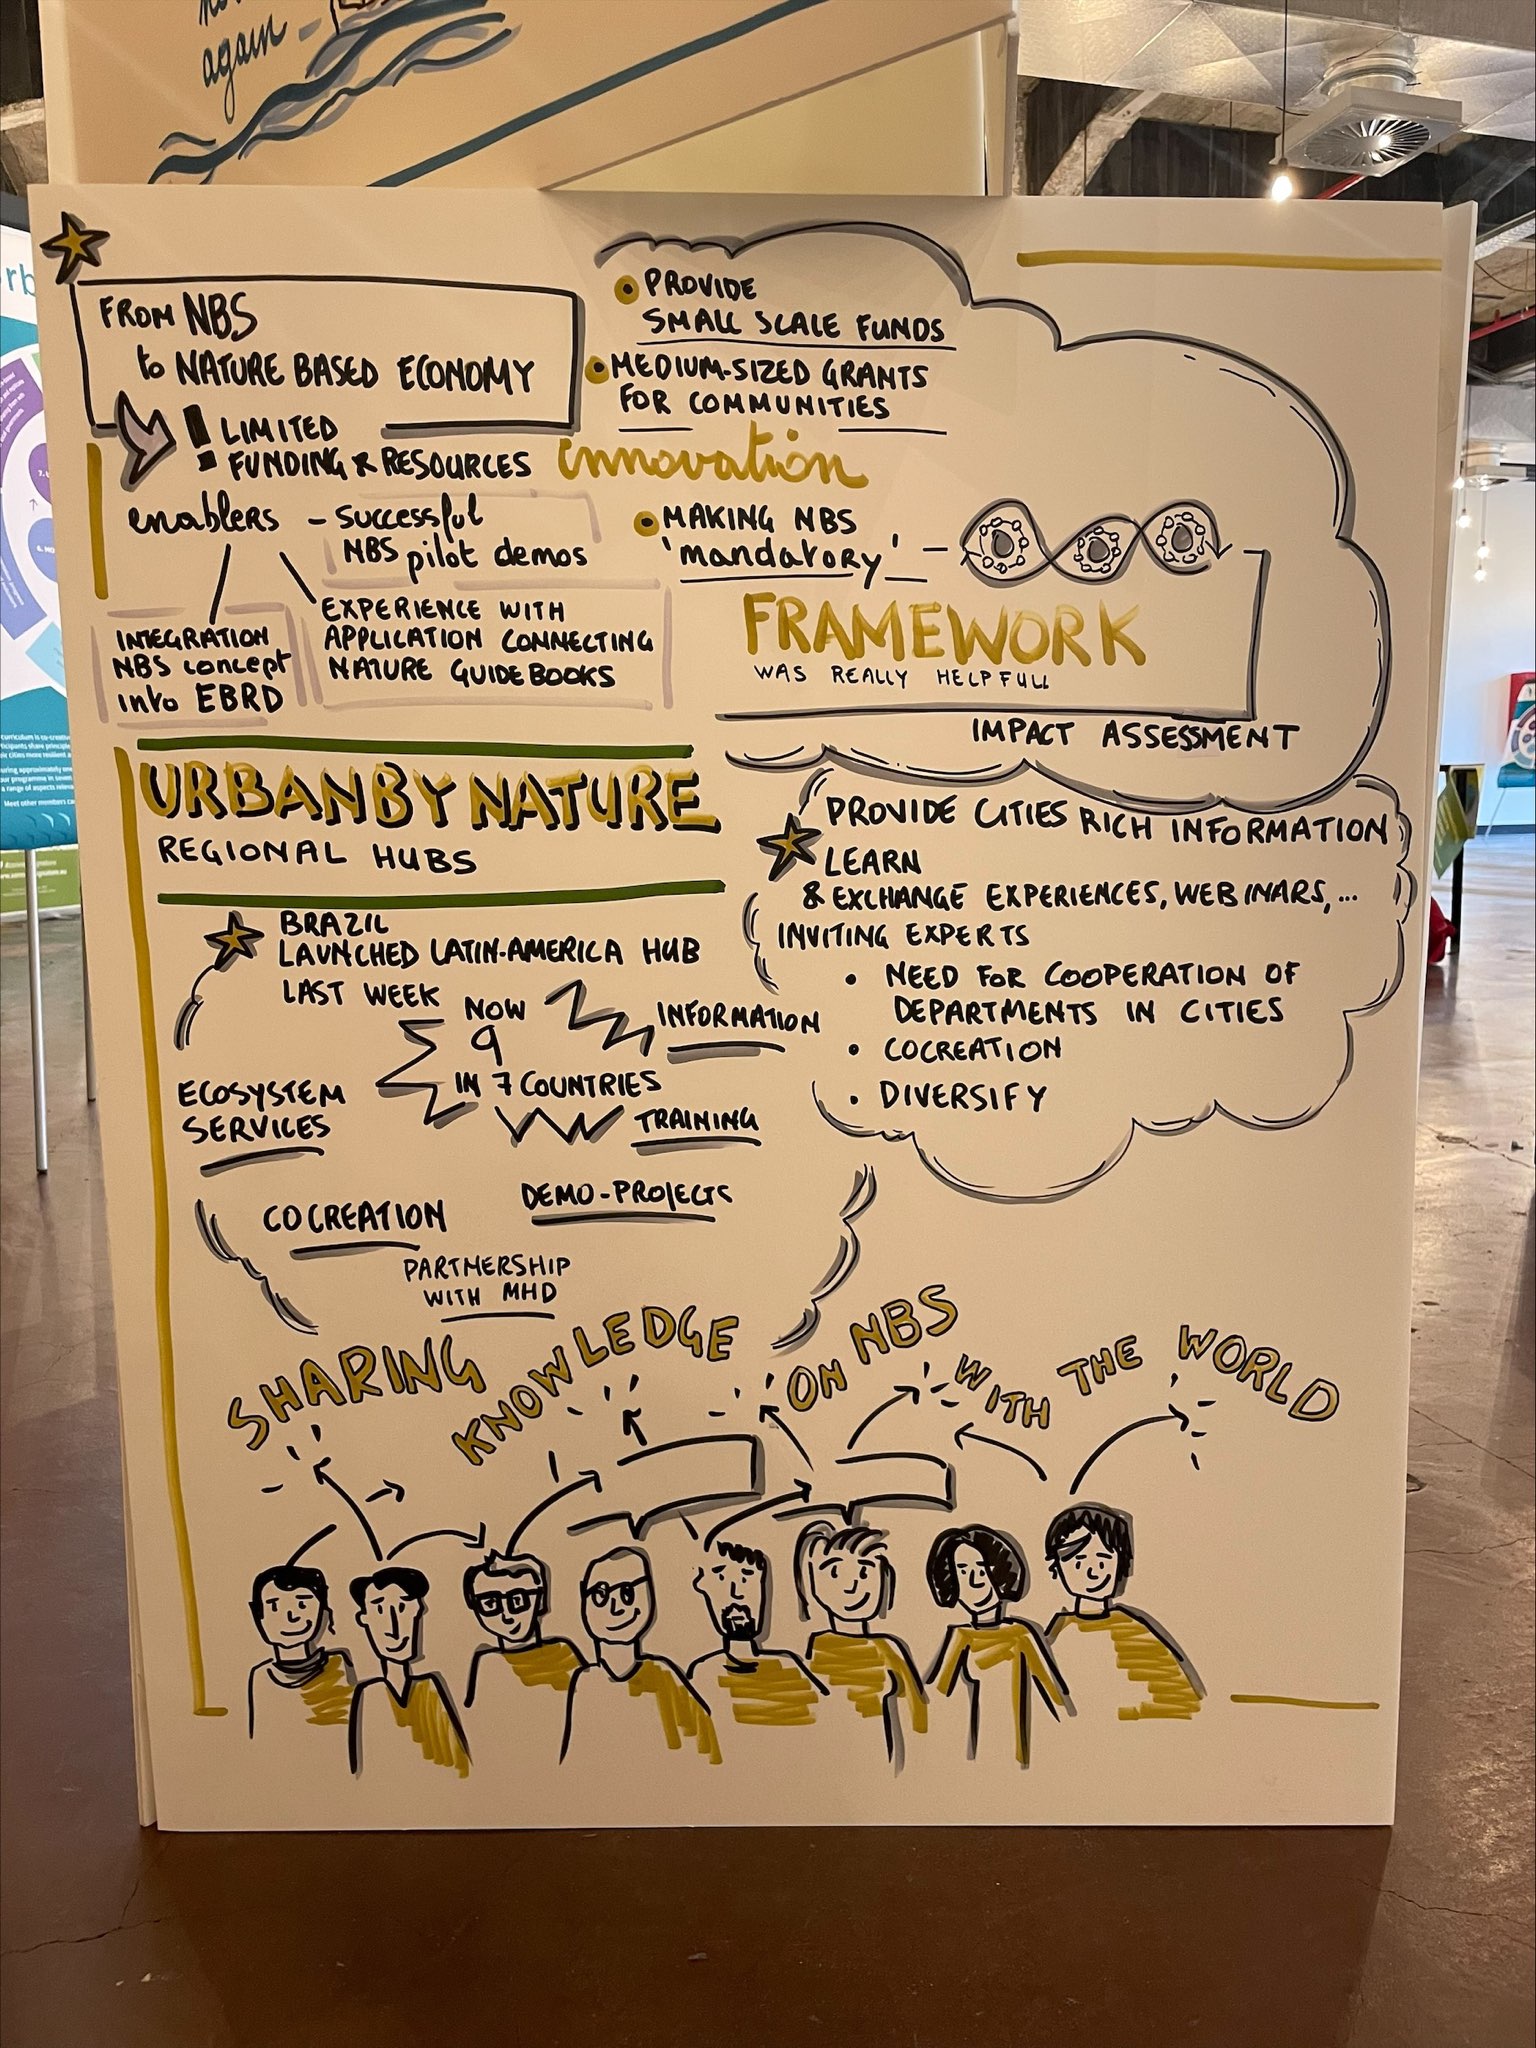 again
FROM NBS
to NATURE BASED ECONOMY
! LIMITED
FUNDING & RESOURCES
enablers
- successful
NBS pilot demos
INTEGRATION
NBS concept
into EBRD
EXPERIENCE WITH
APPLICATION CONNECTING
NATURE GUIDEBOOKS
• PROVIDE
SMALL SCALE FUNDS
• MEDIUM-SIZED GRANTS
FOR COMMUNITIES
innovation
• MAKING NBS
'mandatory' -
FRAMEWORK
WAS REALLY HELPFULL
IMPACT ASSESSMENT
URBANBYNATURE
REGIONAL HUBS
BRAZIL
LAUNCHED LATIN-AMERICA HUB
LAST WEEK
NOW
9
IN 7 COUNTRIES
INFORMATION
TRAINING
DEMO-PROJECTS
ECOSYSTEM
SERVICES
COCREATION
PARTNERSHIP
WITH MHD
PROVIDE CITIES RICH INFORMATION
LEARN
& EXCHANGE EXPERIENCES, WEBINARS, ...
INVITING EXPERTS
• NEED FOR COOPERATION OF
DEPARTMENTS IN CITIES
• COCREATION
• DIVERSIFY
SHARING KNOWLEDGE ON NBS WITH THE WORLD